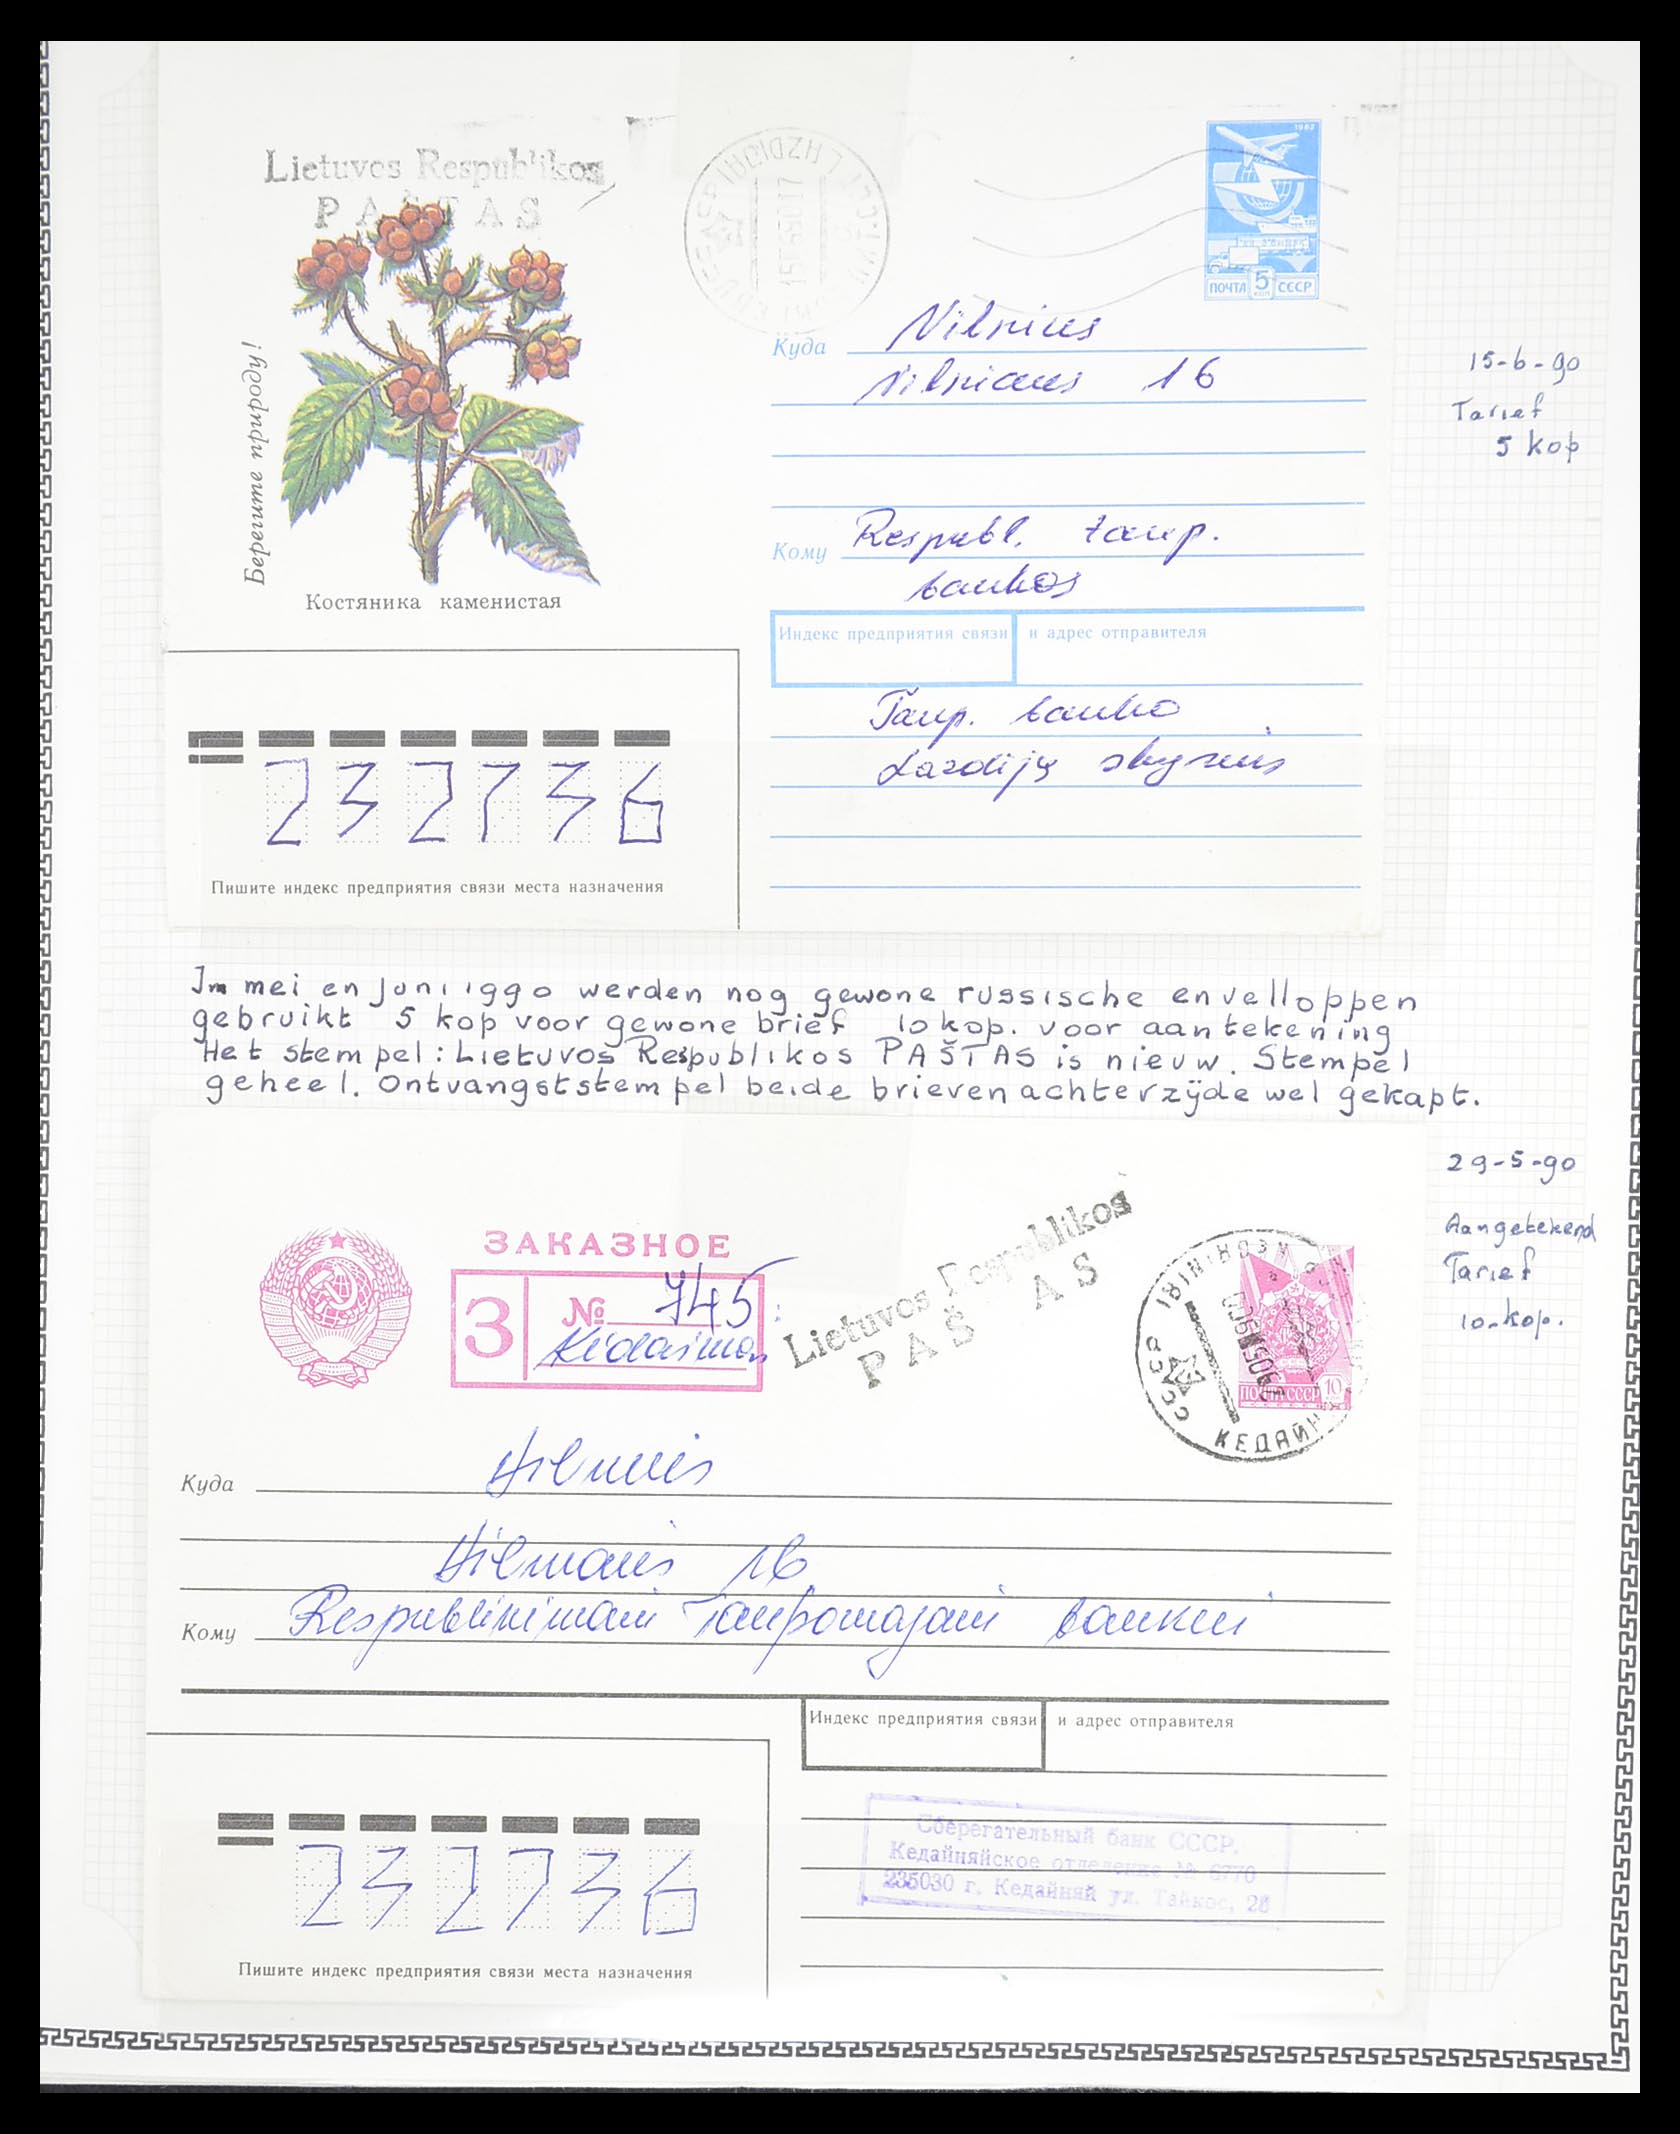 Lietuvos Respublikos
PAŠTAS
1982
ПОЧТА 5 КОП СССР
Берегите природу!
Костяника каменистая
Куда Vilnius
Vilniaus 16
Кому Respubl. taup.
bankos
Индекс предприятия связи и адрес отправителя
Taup. banko
Lazdijų skyrius
232736
Пишите индекс предприятия связи места назначения
15-6-90
Tarief
5 kop
In mei en juni 1990 werden nog gewone russische envelloppen
gebruikt 5 kop voor gewone brief 10 kop. voor aantekening
Het stempel: Lietuvos Respublikos PAŠTAS is nieuw. Stempel
geheel. Ontvangststempel beide brieven achterzijde wel gekapt.
29-5-90
Aangetekend
Tarief
10-kop.
ЗАКАЗНОЕ
З № 745
Lietuvos Respublikos
PAŠ AS
СССР
КЕДАЙН
ПОЧТА СССР 10
Куда Vilnius
Vilniaus 16
Кому Respublikiniam Taupomajam bankui
Индекс предприятия связи и адрес отправителя
Сберегательный банк СССР.
Кедайняйское отделение № 6770
235030 г. Кедайняй ул. Тайкос, 26
232736
Пишите индекс предприятия связи места назначения